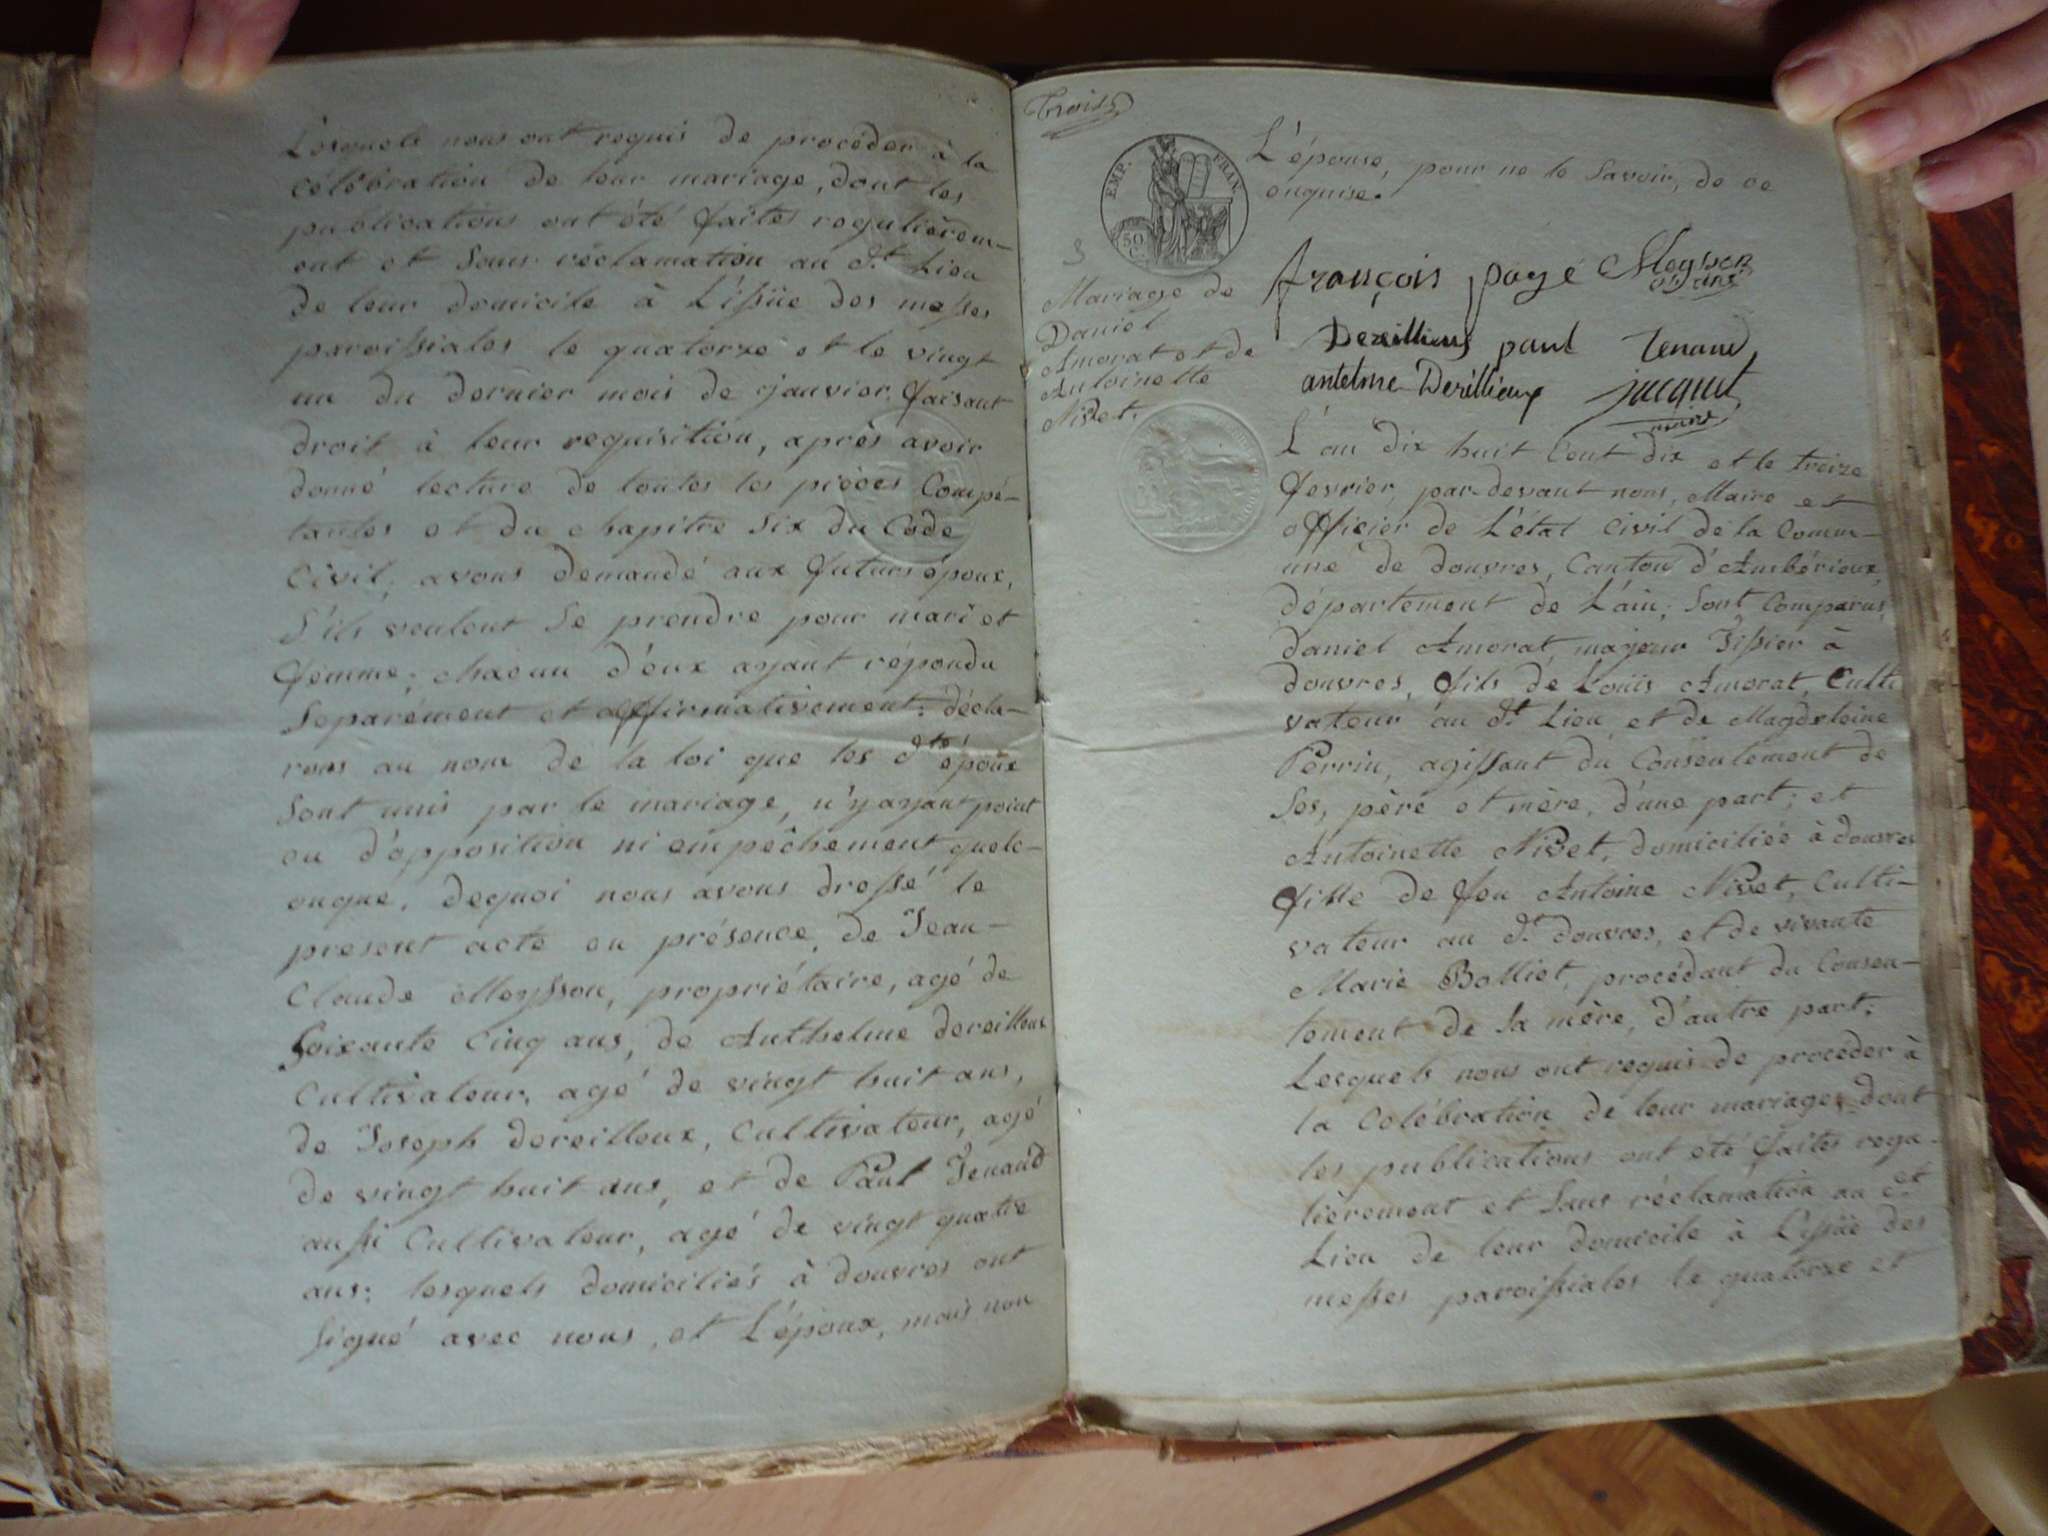 Lesquels nous ont requis de procéder à la
célébration de leur mariage, dont les
publications ont été faites regulièrem-
ent et sans réclamation au dt. Lieu
de leur domicile à L'issüe des messes
paroissiales le quatorze et le vingt
un du dernier mois de janvier, faisant
droit à leur requisition, après avoir
donné lecture de toutes les pièces Compé-
tantes et du chapitre Six du Code
Civil, avons demandé aux futurs époux,
S'ils veulent Se prendre pour mari et
femme; chacun d'eux ayant répondu
Separément et affirmativement; décla-
rons au nom de la loi que les dts. époux
Sont unis par le mariage, n'y ayant point
eu d'opposition ni empêchement quelc-
onque, dequoi nous avons dressé le
present acte en présence, de Jean-
Claude Meysson, propriétaire, agé de
Soixante Cinq ans, de Anthelme dereilleux
Cultivateur, agé de vingt huit ans,
de Joseph dereilleux, Cultivateur, agé
de vingt huit ans, et de Paul Tenand
aussi Cultivateur, agé de vingt quatre
ans; lesquels domiciliés à douvres ont
Signé avec nous, et L'époux, mais non
Trois
EMP. FRAN.
50 C.
L'épouse, pour ne le Savoir, de ce
enquise.
3
françois payé Meysson
Dereillieux paul Tenand
antelme Derillieux jacquet
maire
Mariage de
Daniel
Amorat et de
Antoinette
Nivet.
L'an dix huit Cent dix et le treize
fevrier, par-devant nous, Maire et
officier de L'état Civil de la Comm-
une de douvres, Canton d'Ambérieux,
département de L'ain; Sont Comparus,
Daniel Amorat, majeur Tissier à
douvres, fils de Louis Amorat, Culti
vateur au dt. Lieu, et de Magdeleine
Perrin, agissant du Consentement de
Ses, père et mère, d'une part; et
Antoinette Nivet, domiciliée à douvres
fille de feu Antoine Nivet, Culti-
vateur au dt. douvres, et de vivante
Marie Bolliet, procédant du Consen-
tement de Sa mère, d'autre part;
Lesquels nous ont requis de procéder à
la Celébration de leur mariage, dont
les publications ont eté faites regu-
lierement et Sans réclamation au dt.
Lieu de leur domicile à L'issüe des
messes paroissiales le quatorze et